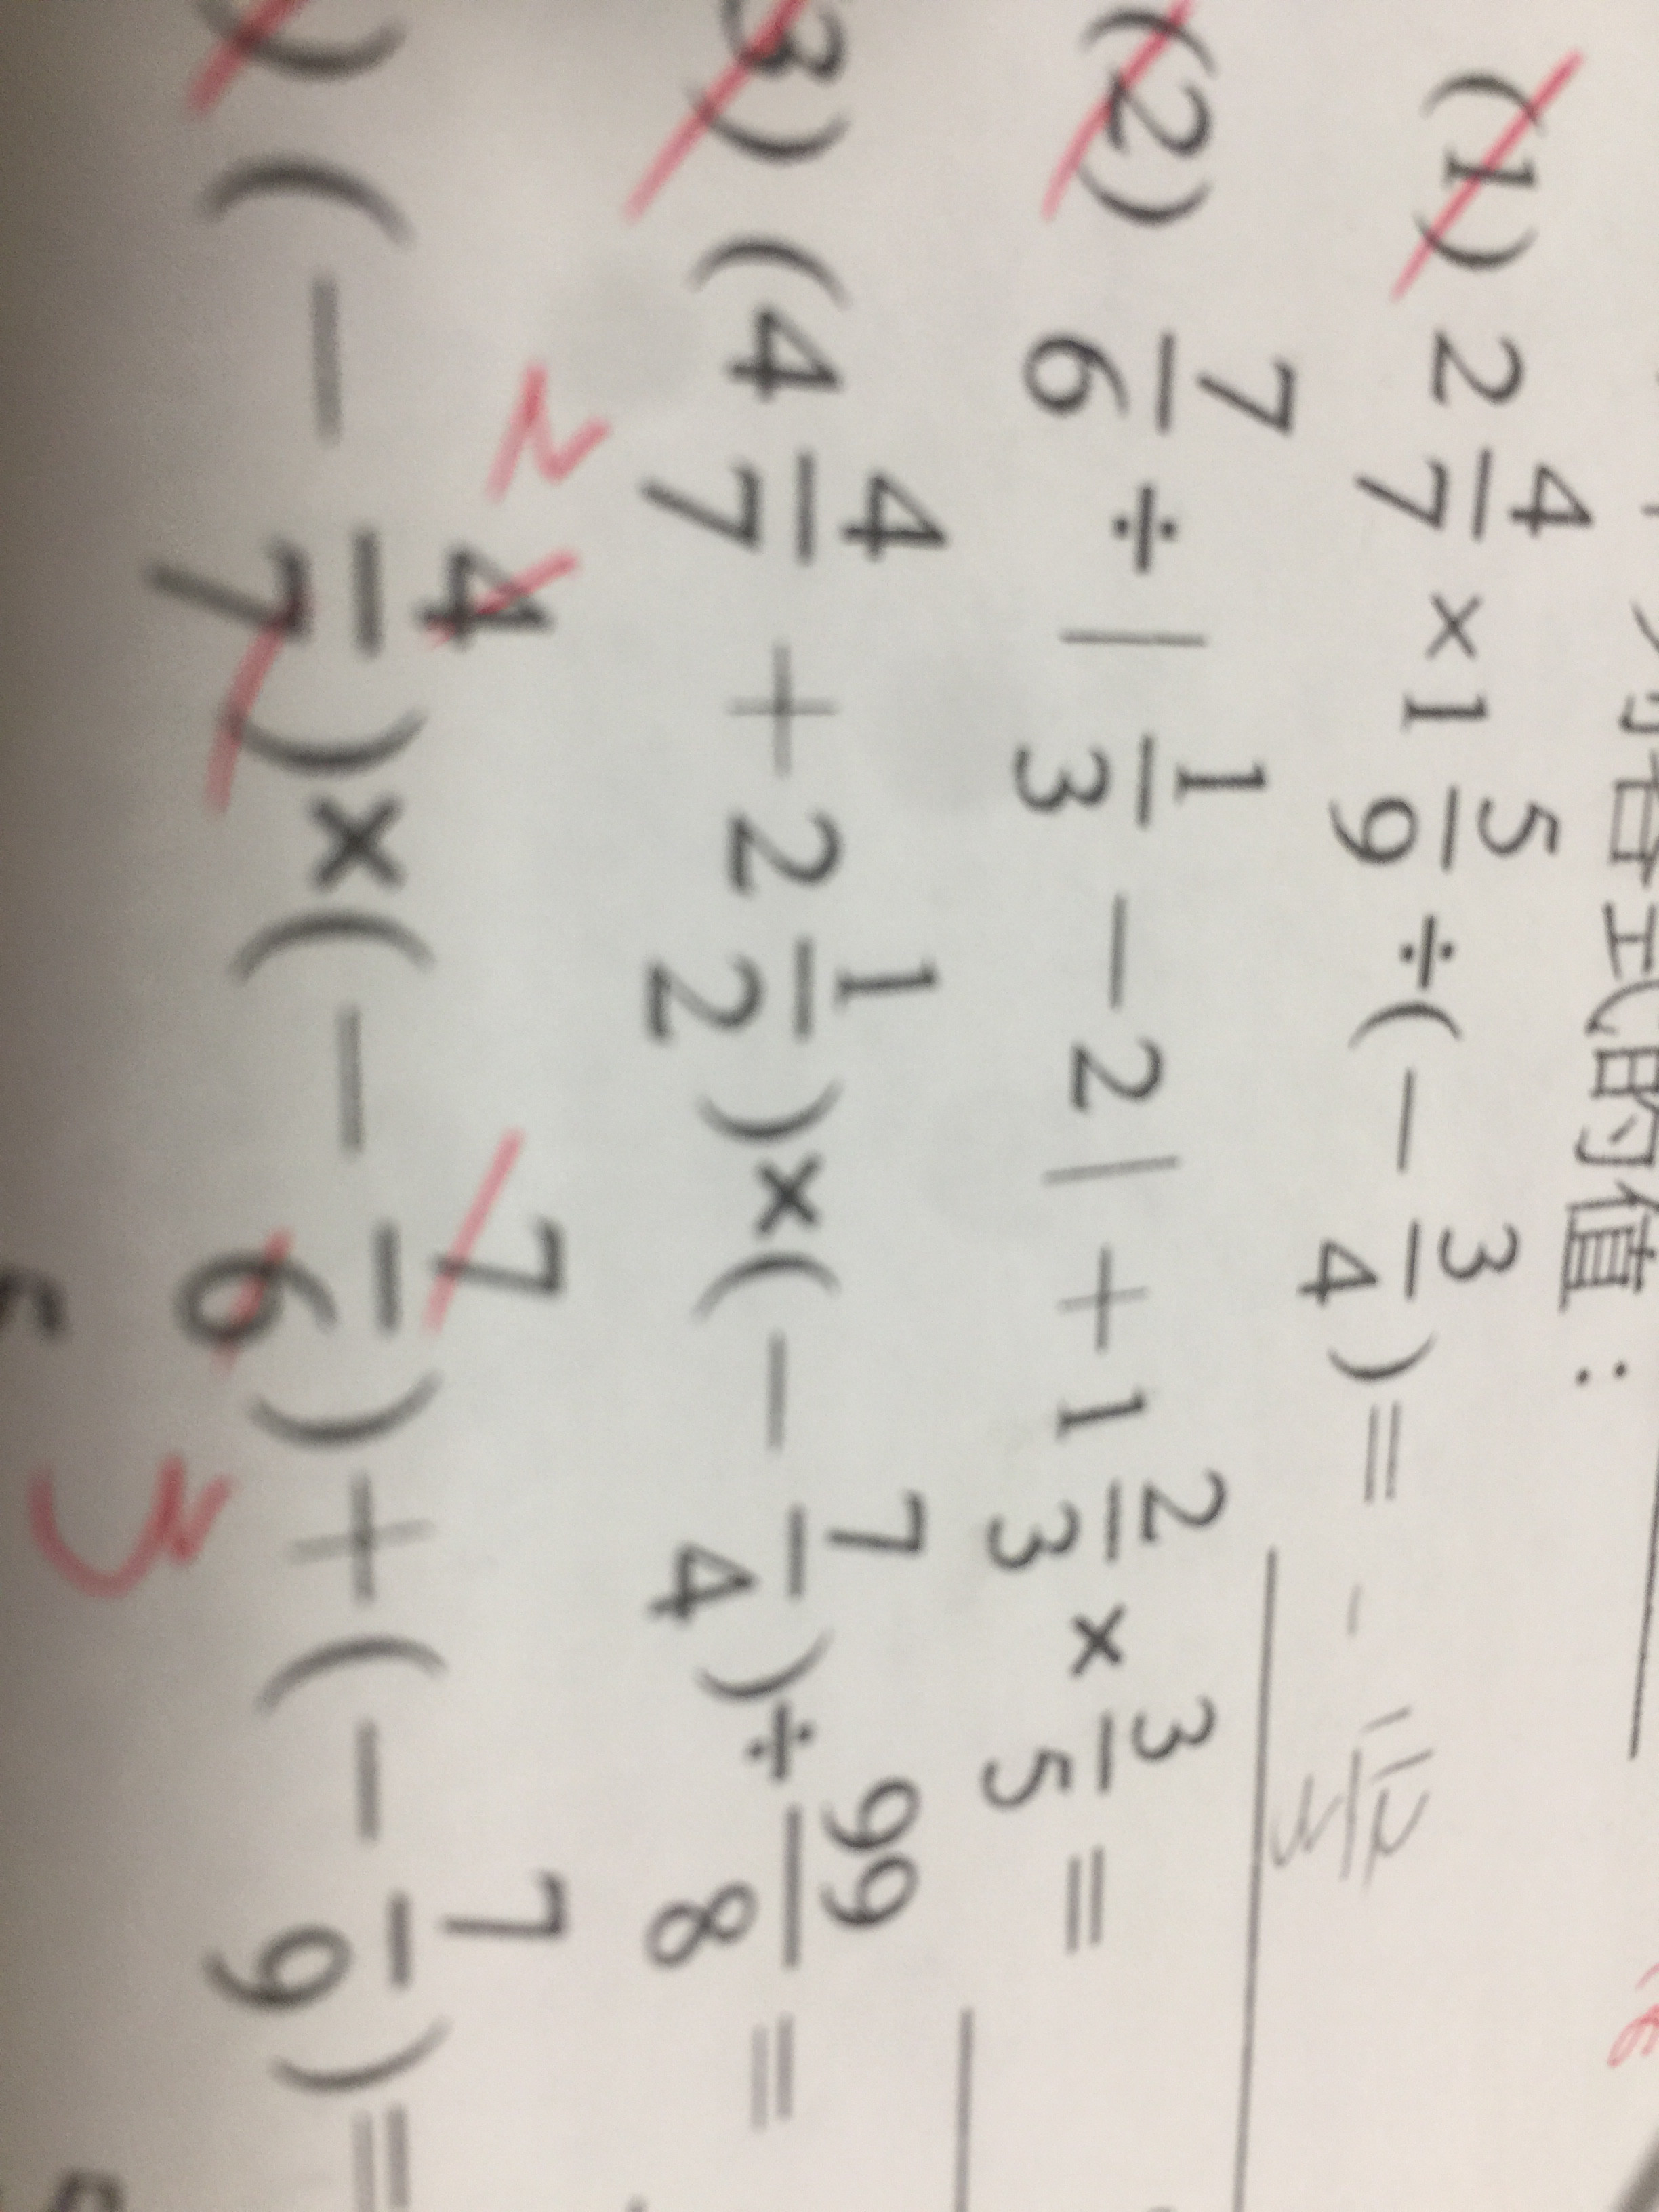 各式的值：
(1) 2 4/7 × 1 5/9 ÷ (− 3/4) =
(2) 7/6 ÷ | 1/3 − 2 | + 1 2/3 × 3/5 =
(3) (4 4/7 + 2 1/2) × (− 7/4) ÷ 99/8 =
) (− 4/7) × (− 7/6) + (− 7/9) =
2
3